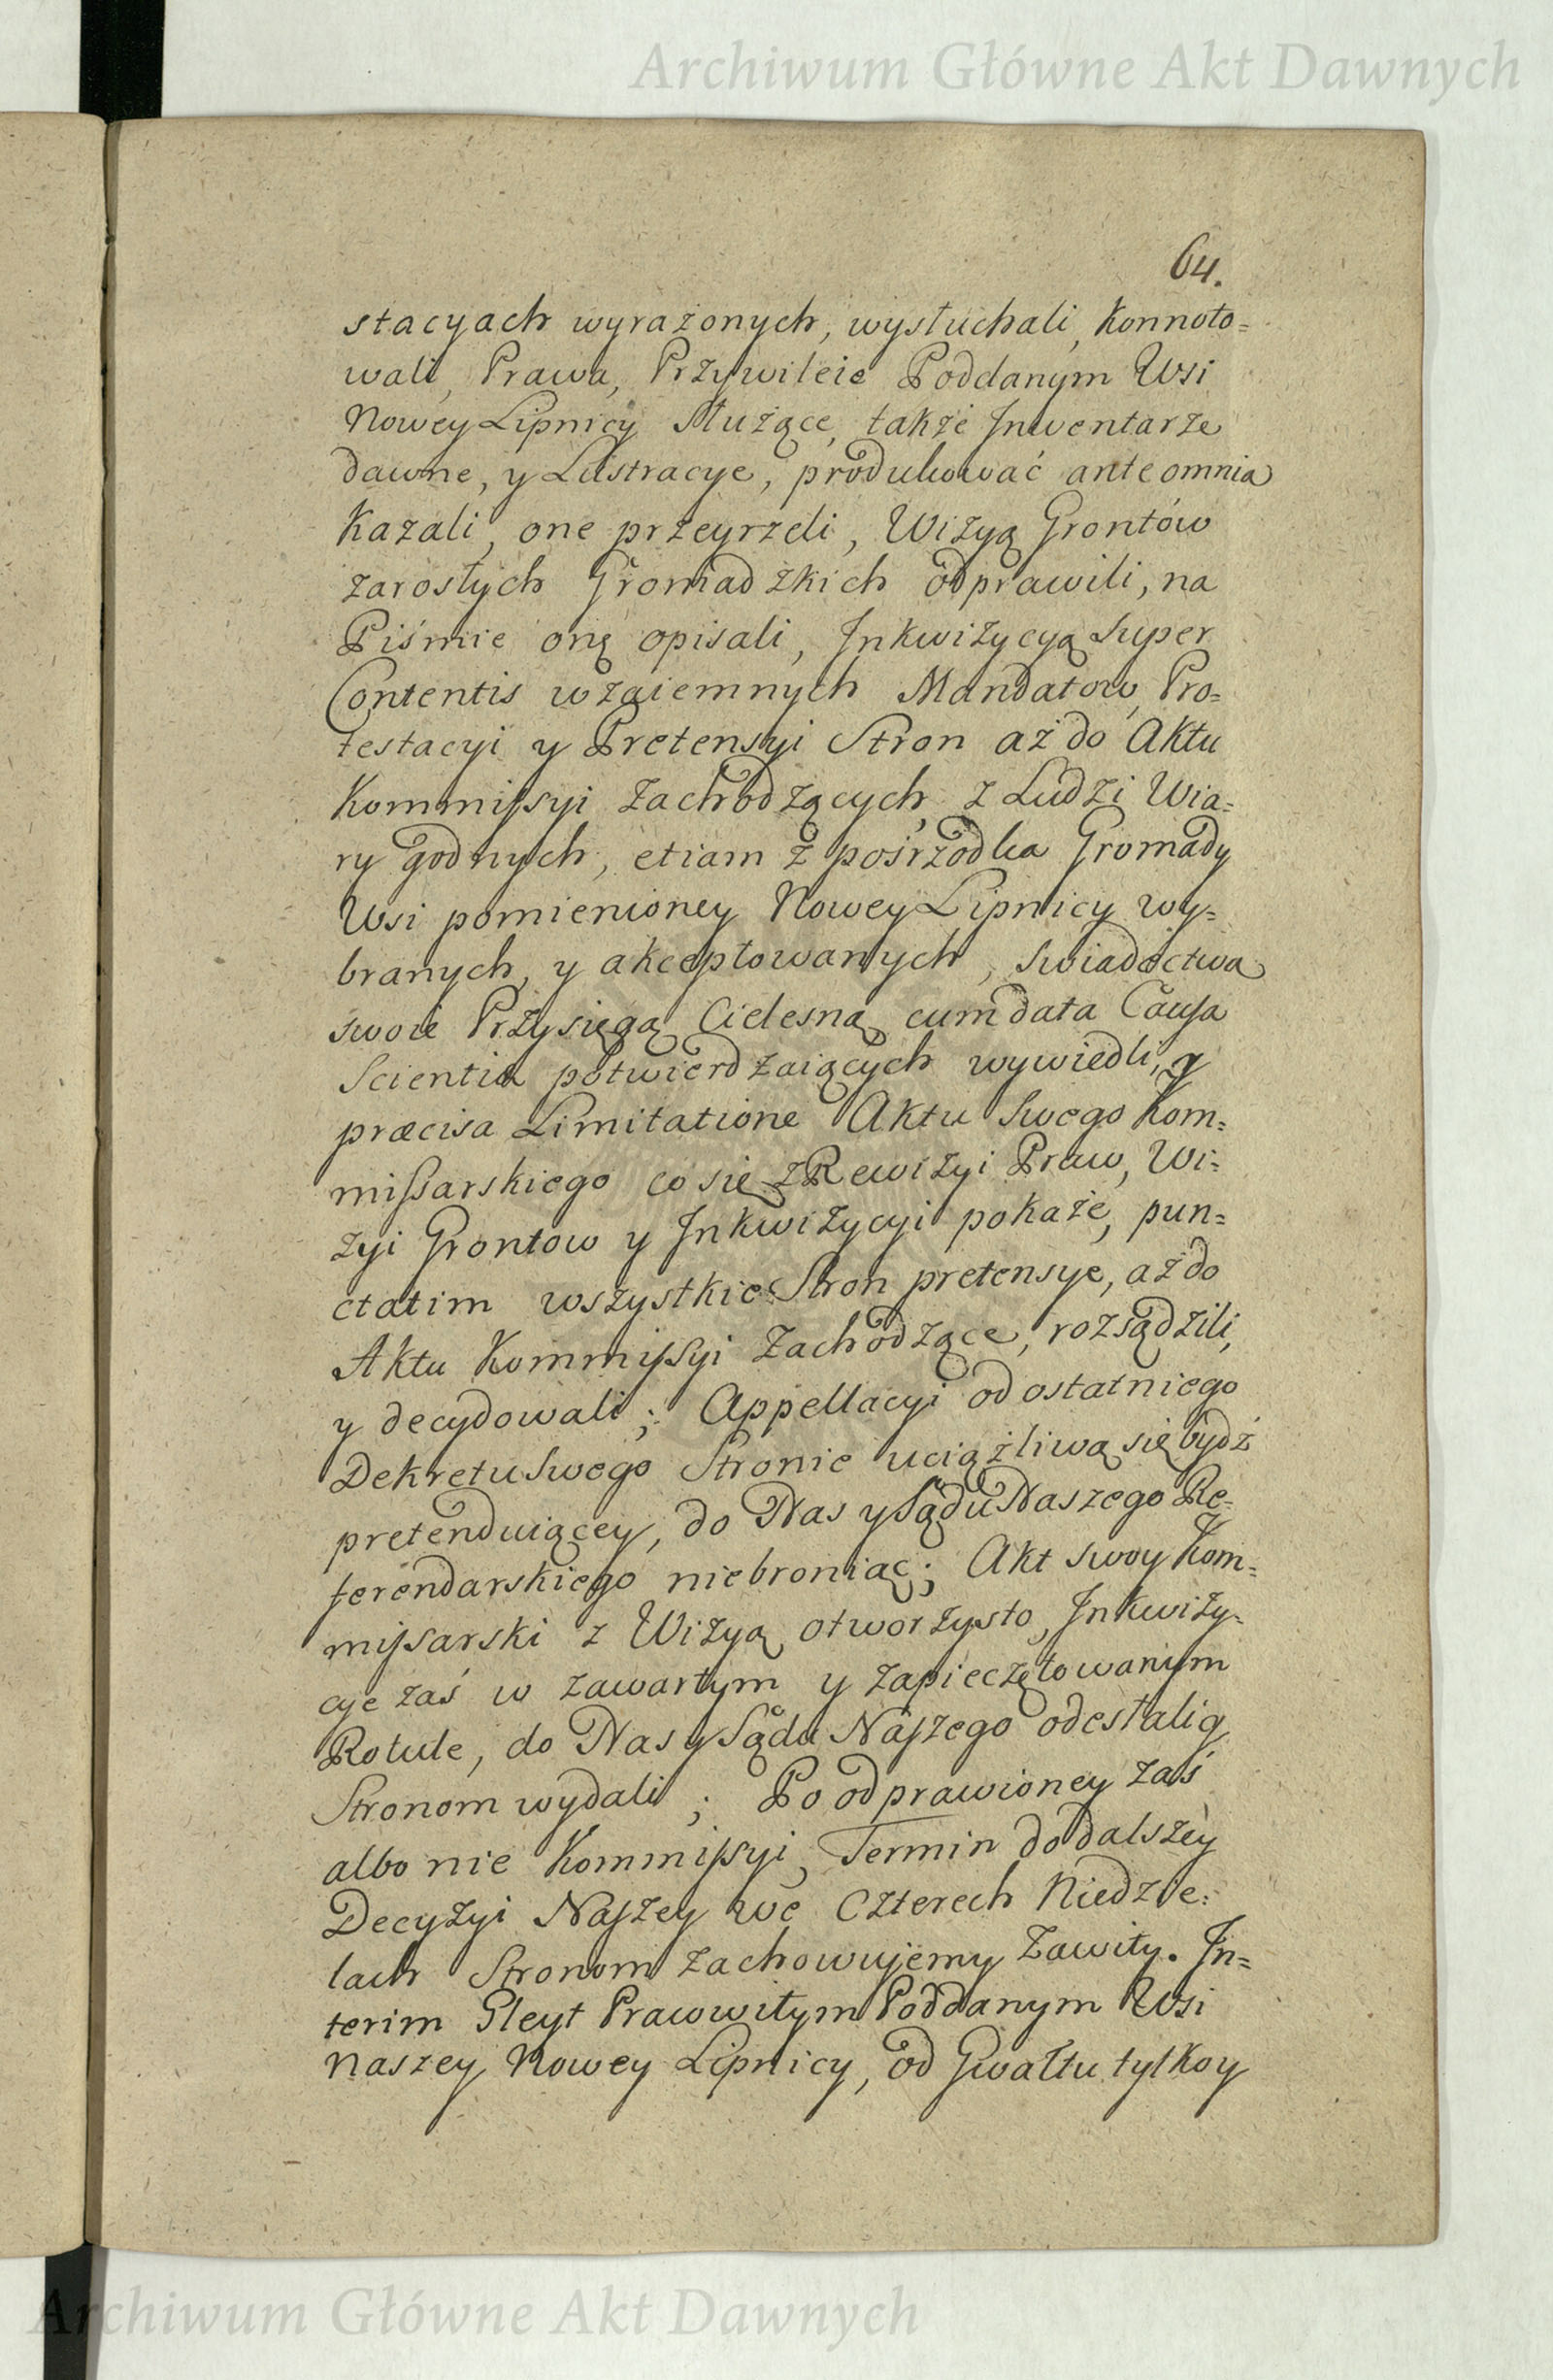 Archiwum Główne Akt Dawnych
64.
stacyach wyrażonych, wysłuchali, Konnoto=
wali, Prawa, Przywileie Poddanym Wsi
Nowey Lipnicy służące, także Inwentarze
dawne, y Lustracye, produkować ante omnia
Kazali, one przeyrzeli, Wizyą Grontów
zarosłych Gromadzkich odprawili, na
Piśmie onę opisali, Inkwizycyą Super
Contentis wzaiemnych Mandatow, Pro=
testacyi y Pretensyi Stron aż do Aktu
Kommissyi zachodzących, z Ludzi Wia=
ry godnych, etiam z pośrzodka Gromady
Wsi pomienioney Nowey Lipnicy wy=
branych, y akceptowanych, Swiadectwa
swoie Przysięgą Cielesną, cum data Causa
Scientia potwierdzaiących wywiedli, y
præcisa Limitatione Aktu Swego Kom=
missarskiego co się z Rewizyi Praw, Wi=
zyi Grontow y Inkwizycyi pokaże, pun=
ctatim wszystkie Stron pretensye, aż do
Aktu Kommissyi Zachodzące, rozsądzili,
y decydowali; Appellacyi od ostatniego
Dekretu Swego Stronie uciążliwą się bydź
pretenduiącey, do Nas y Sądu Naszego Re=
ferendarskiego niebroniąc; Akt swoy Kom=
missarski z Wizyą otworzysto, Inkwizy=
cye zaś w zawartym y zapieczętowanym
Rotule, do Nas y Sądu Naszego odesłali y
Stronom wydali; Po odprawioney zaś
albo nie Kommissyi, Termin do dalszey
Decyzyi Naszey we Czterech Niedzie=
lach Stronom zachowujemy Zawity. In=
terim Gleyt Prawowitym Poddanym Wsi
naszey Nowey Lipnicy, od Gwałtu tylko y
Archiwum Główne Akt Dawnych